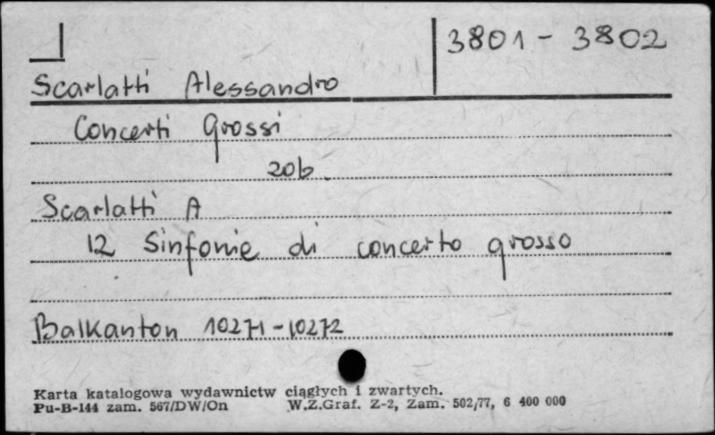 3801 - 3802
Scarlatti Alessandro
Concerti grossi
20b.
Scarlatti A
12 Sinfonie di concerto grosso
Balkanton 10271-10272
Karta katalogowa wydawnictw ciągłych i zwartych.
Pu-B-144 zam. 567/DW/On W.Z.Graf. Z-2, Zam. 502/77, 6 400 000